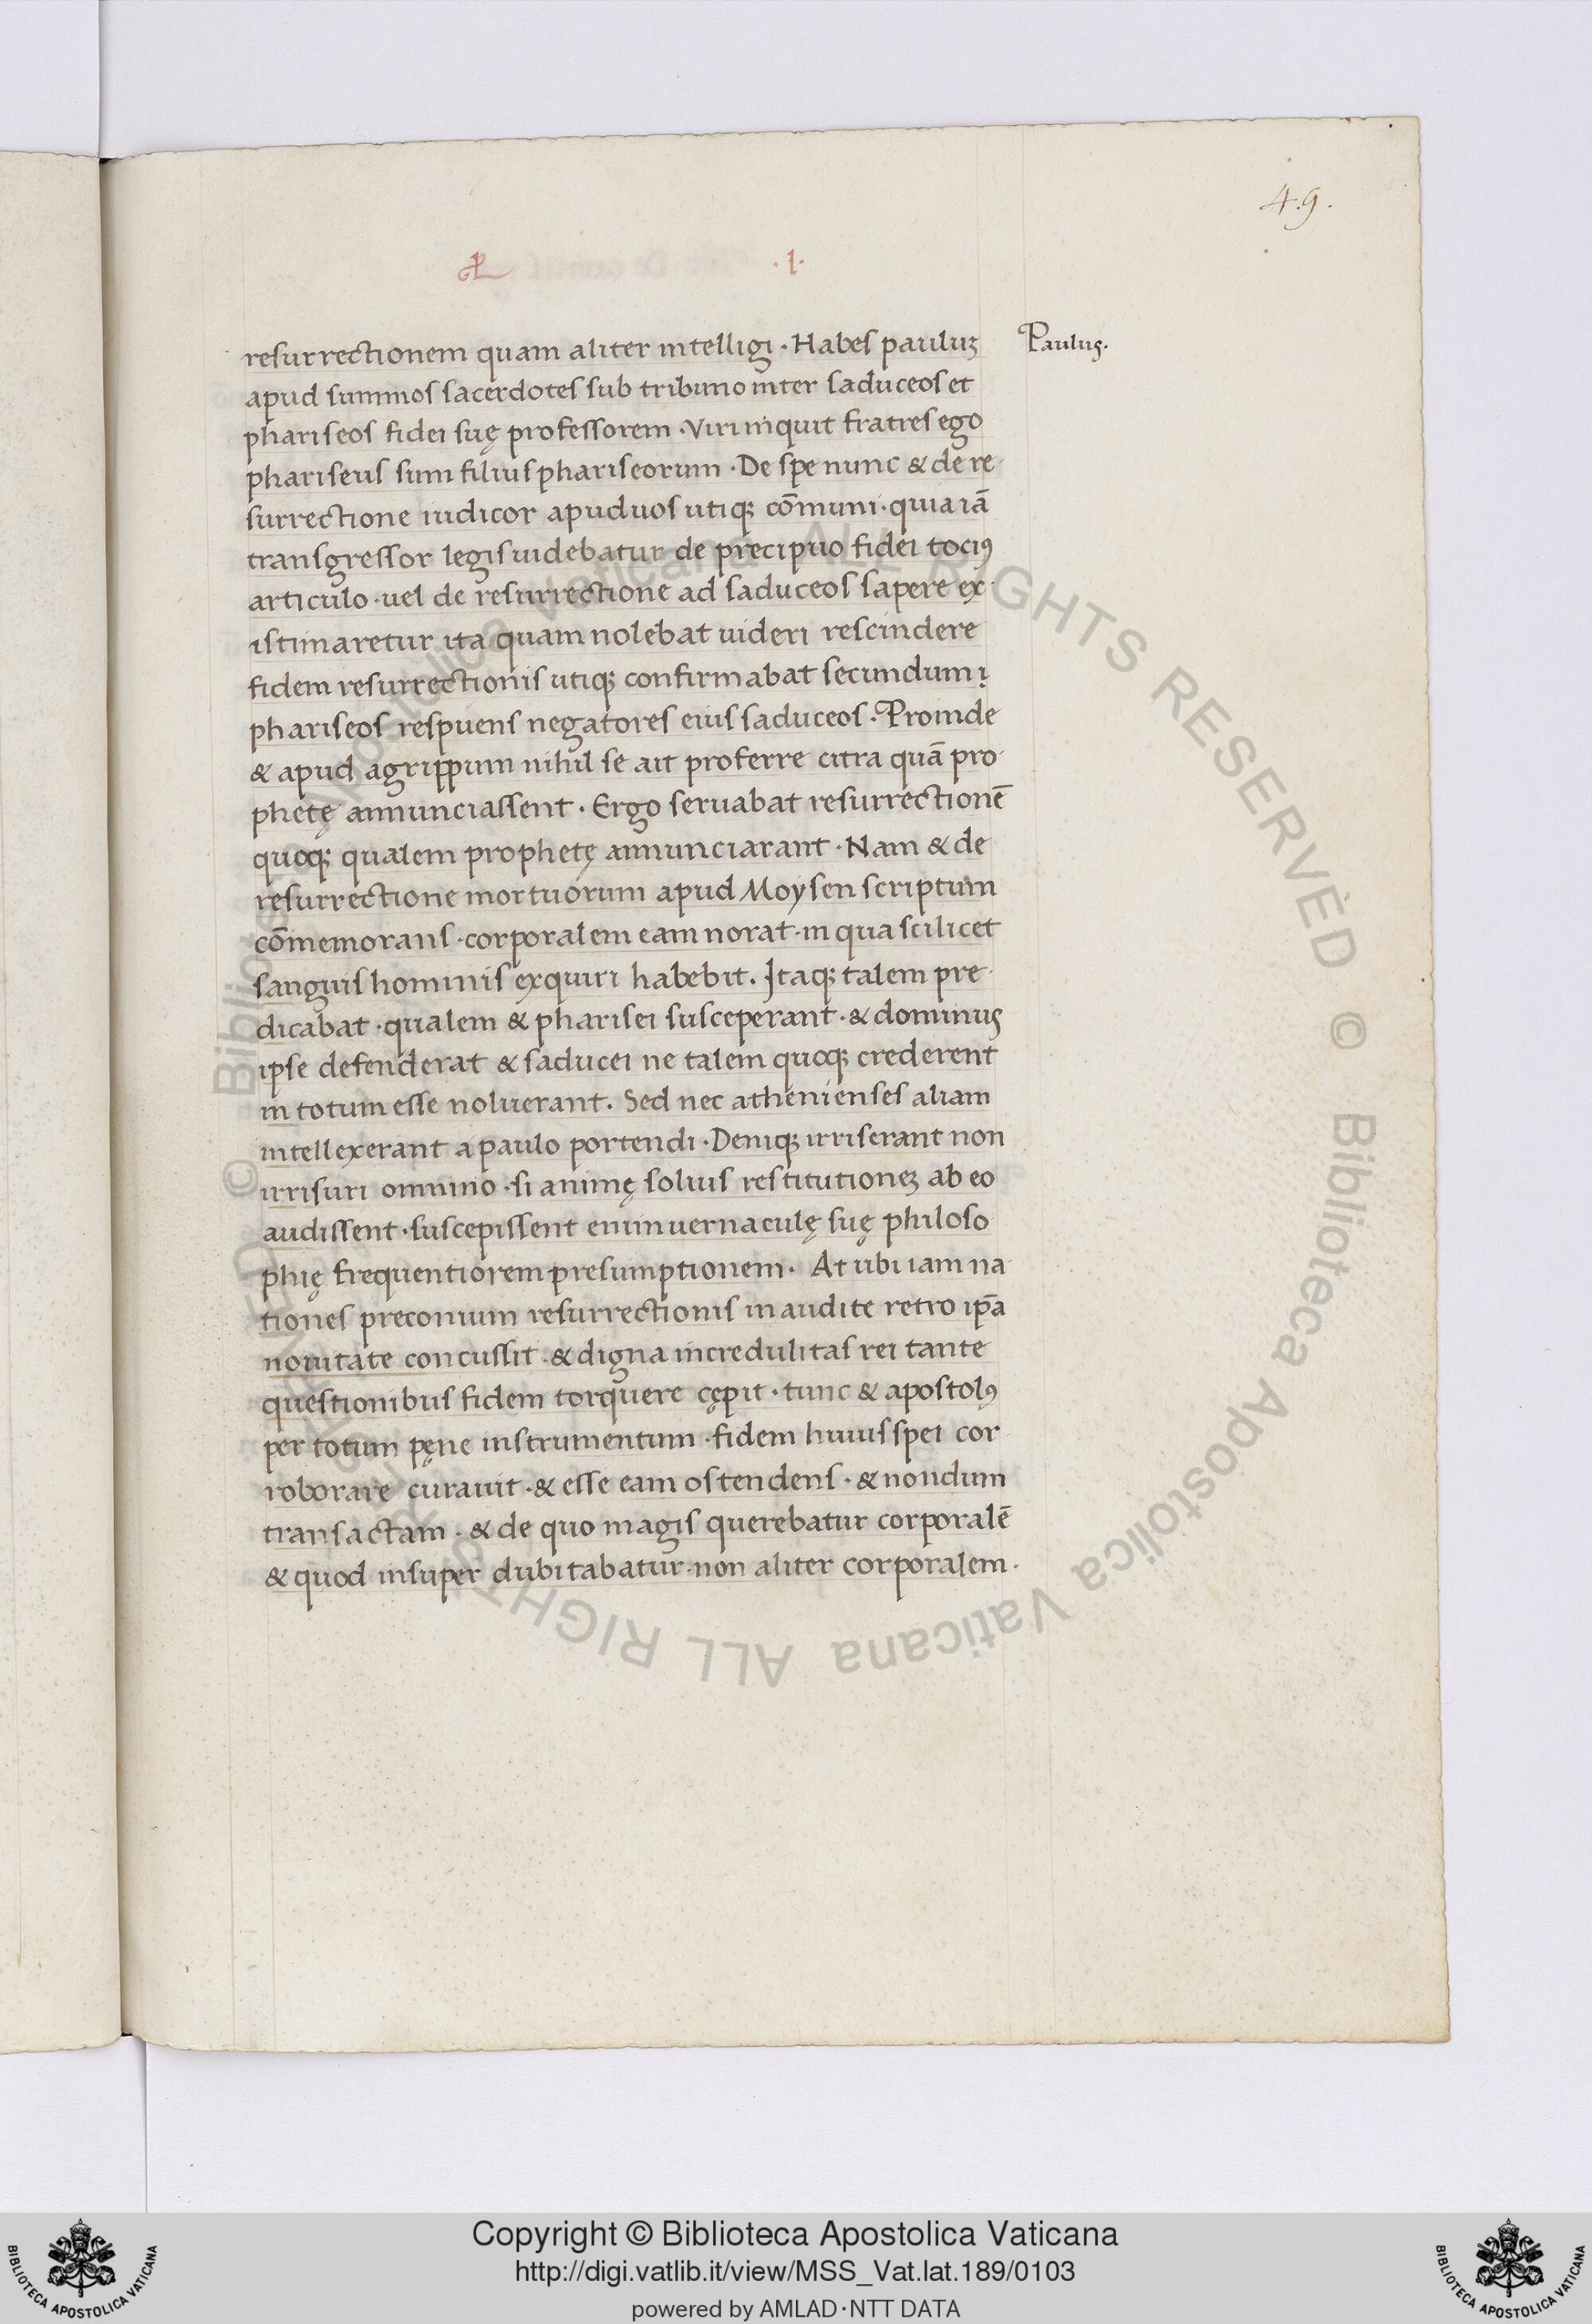 4.9.
.1.
resurrectionem quam aliter intelligi · Habes pauluꝫ
Paulus.
apud summos sacerdotes sub tribuno inter saduceos et
phariseos fidei suę professorem · Viri inquit fratres ego
phariseus sum filius phariseorum · De spe nunc & de re
surrectione iudicor apud uos utiqꝫ cōmuni · quia iā
transgressor legis uidebatur de precipuo fidei tociꝰ
articulo · uel de resurrectione ad saduceos sapere ex
istimaretur ita quam nolebat uideri rescindere
fidem resurrectionis utiqꝫ confirmabat secundum
phariseos respuens negatores eius saduceos · Proinde
& apud agrippum nihil se ait proferre citra quā pro
phetę annunciassent · Ergo seruabat resurrectionē
quoqꝫ qualem prophetę annunciarant · Nam & de
resurrectione mortuorum apud Moysen scriptum
cōmemorans · corporalem eam norat · in qua scilicet
sanguis hominis exquiri habebit. Itaqꝫ talem pre
dicabat · qualem & pharisei susceperant · & dominus
ipse defenderat & saducei ne talem quoqꝫ crederent
in totum esse noluerant. Sed nec athenienses aliam
intellexerant a paulo portendi · Deniqꝫ irriserant non
irrisuri omnino · si animę solius restitutioneꝫ ab eo
audissent · suscepissent enim uernaculę suę philoso
phię frequentiorem presumptionem · At ubi iam na
tiones preconium resurrectionis inaudite retro ip̄a
nouitate concussit · & digna incredulitas rei tante
questionibus fidem torquere cępit · tunc & apostolꝰ
per totum pęne instrumentum · fidem huius spei cor
roborare curauit · & esse eam ostendens · & nondum
transactam · & de quo magis querebatur corporalē
& quod insuper dubitabatur · non aliter corporalem ·
© Biblioteca Apostolica Vaticana ALL RIGHTS RESERVED
© Biblioteca Apostolica Vaticana ALL RIGHTS RESERVED
Copyright © Biblioteca Apostolica Vaticana
http://digi.vatlib.it/view/MSS_Vat.lat.189/0103
powered by AMLAD·NTT DATA
BIBLIOTECA APOSTOLICA VATICANA
BIBLIOTECA APOSTOLICA VATICANA